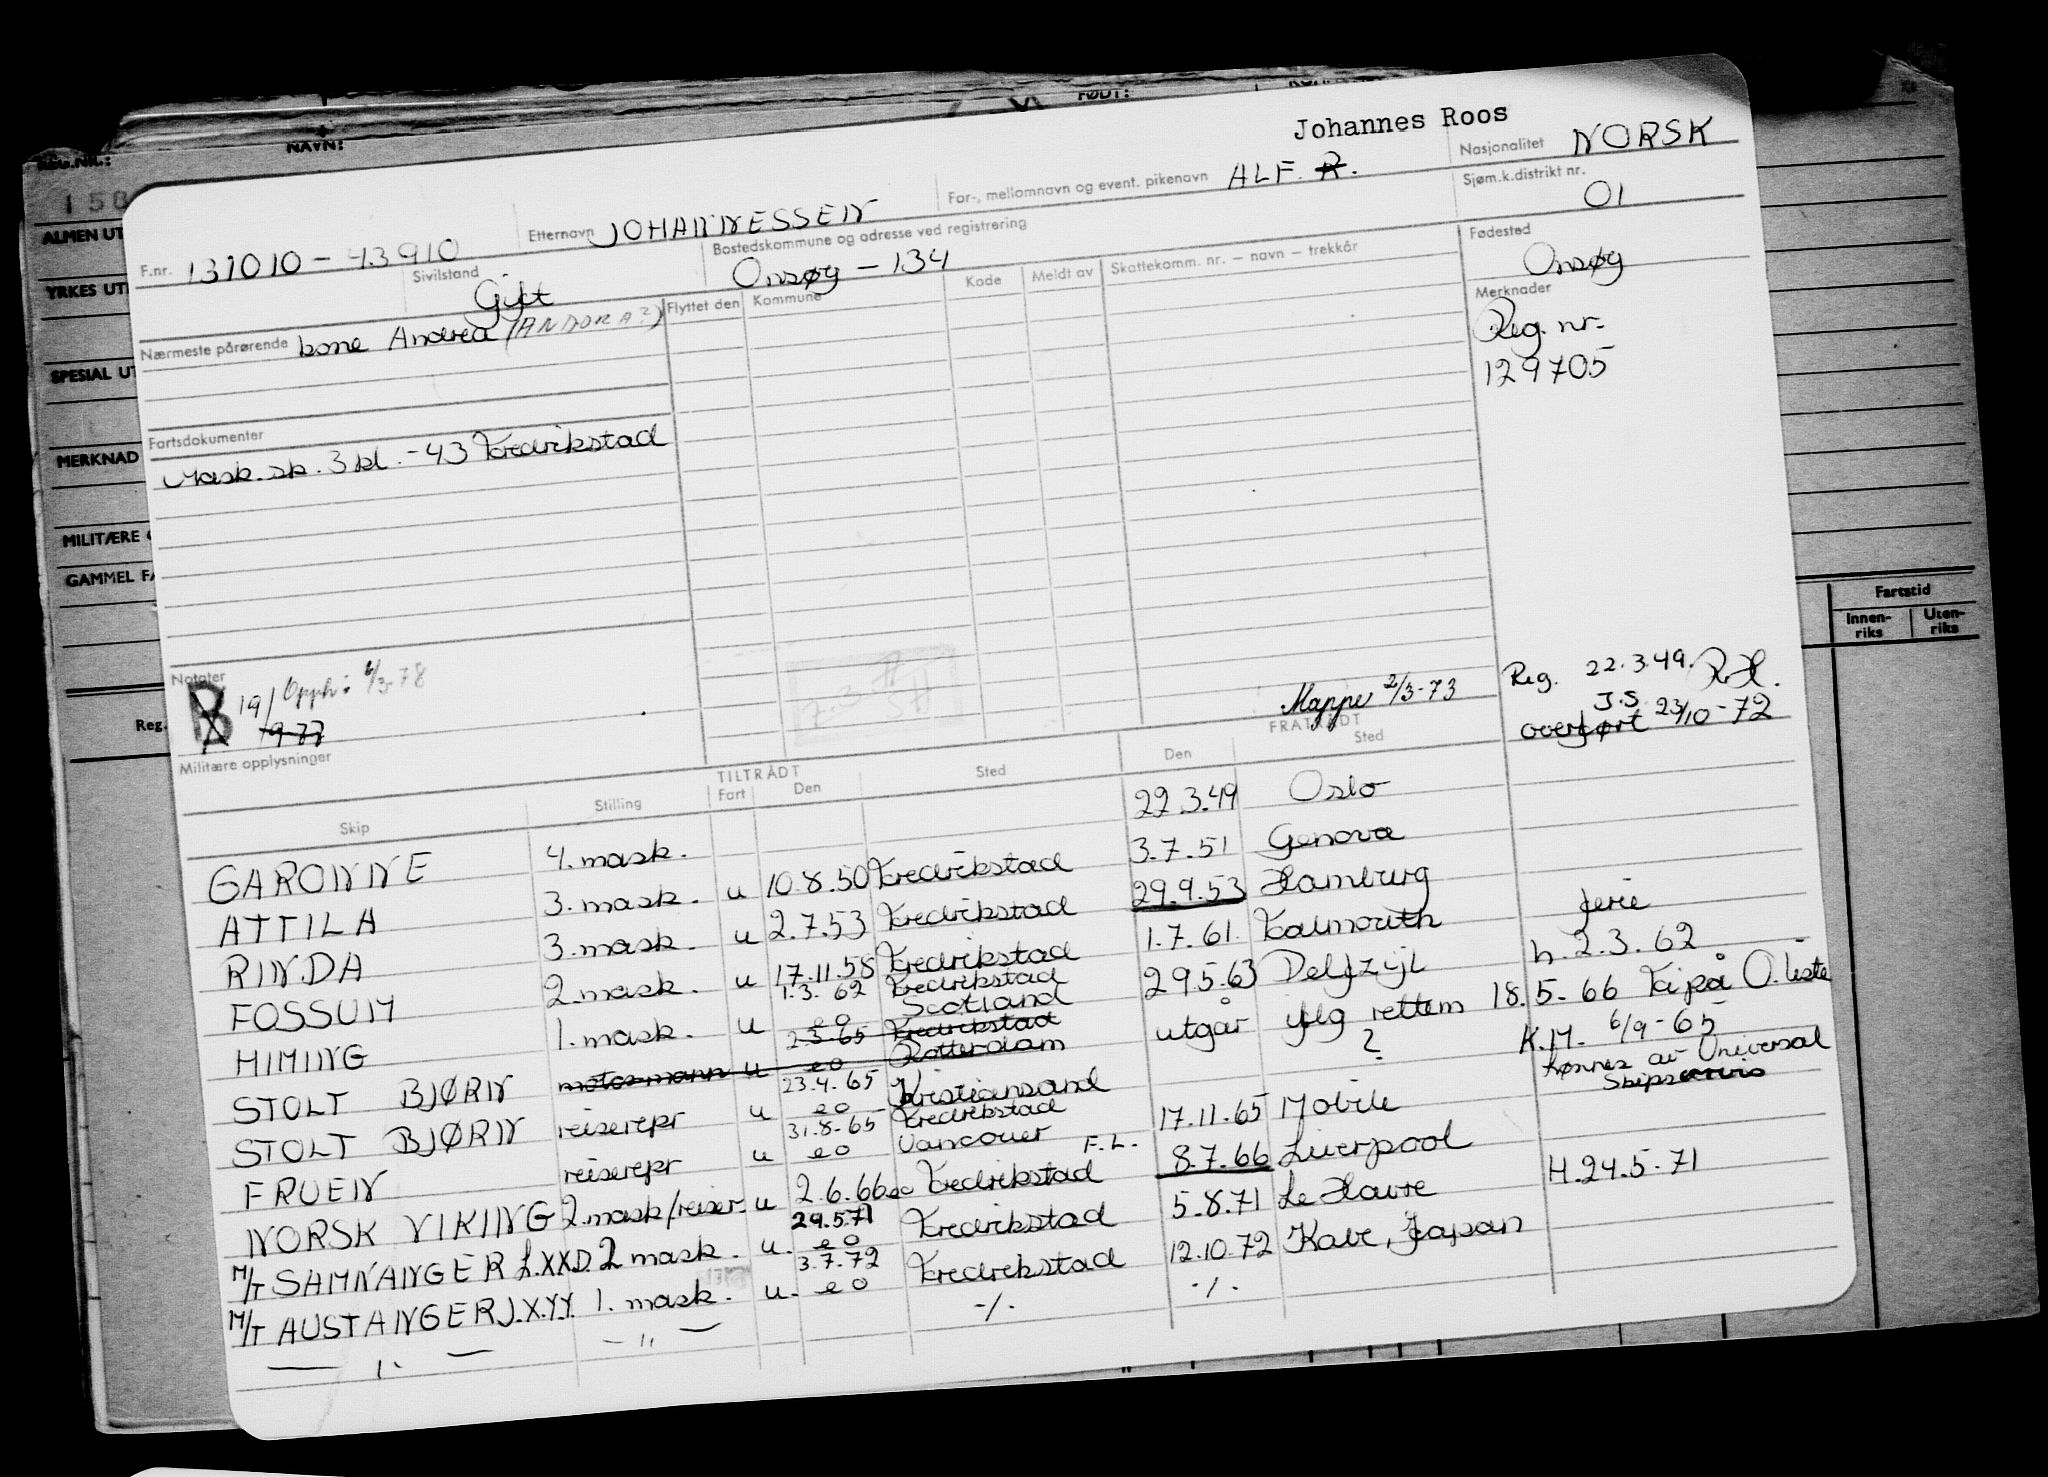 FØDT:
REG.NR.:
NAVN:
Johannes Roos
Nasjonalitet NORSK
For-, mellomnavn og event. pikenavn ALF. R.
Sjøm.k.distrikt nr.
01
Etternavn JOHANNESSEN
F.nr. 131010-43910
Sivilstand
Gift
Bostedskommune og adresse ved registrering
Onsøy - 134
Fødested
Onsøy
ALMEN UT
YRKES UT
SPESIAL UT
MERKNAD
MILITÆRE
GAMMEL FA
Reg.
Nærmeste pårørende kone Andrea (ANDORA?)
Flyttet den Kommune Kode Meldt av Skattekomm. nr. – navn – trekkår
Merknader
Reg. nr.
129705
Fartsdokumenter
Mask.sk. 3 kl. -43 Fredrikstad
Fartstid
Innen-riks Uten-riks
Notater
B 19/ Opph: 6/3-78
9-77
Mappe 2/3-73
Reg. 22.3.49.
J.S.
overført 23/10-72
Militære opplysninger
TILTRÅDT FRATRÅDT
Skip Stilling Fart Den Sted Den Sted
GARONNE 4. mask. 22.3.49 Oslo
ATTILA 3. mask. u 10.8.50 Fredrikstad 3.7.51 Genova
RINDA 3. mask. u 2.7.53 Fredrikstad 29.9.53 Hamburg
FOSSUM 2. mask. u 17.11.58 Fredrikstad 1.7.61. Falmouth ferie
HIMING 1. mask. u 1.3.62 eo Fredrikstad Scotland 29.5.63 Delfzijl h. 2.3.62
STOLT BJØRN motormann u 2.3.65 eo Fredrikstad Rotterdam utgår iflg rettem 18.5.66 Fi på O.liste
STOLT BJØRN reiserepr u 23.4.65 eo Kristiansand ? K.M. 6/9-65
lønnes av Universal
Skipsservis
FRUEN reiserepr u 31.8.65 eo Fredrikstad Vancouver 17.11.65 Mobile
NORSK VIKING 2. mask/reiser. u 2.6.66 eo Fredrikstad F.L. 8.7.66 Liverpool
M/T SAMNANGER L.X.X.D. 2 mask. u. 29.5.71 eo Fredrikstad 5.8.71 Le Havre H.24.5.71
M/T AUSTANGER J.X.Y.Y. 1. mask. u. 3.7.72 eo Fredrikstad 12.10.72 Kobe, Japan
— 1. — — " — -/. -/.